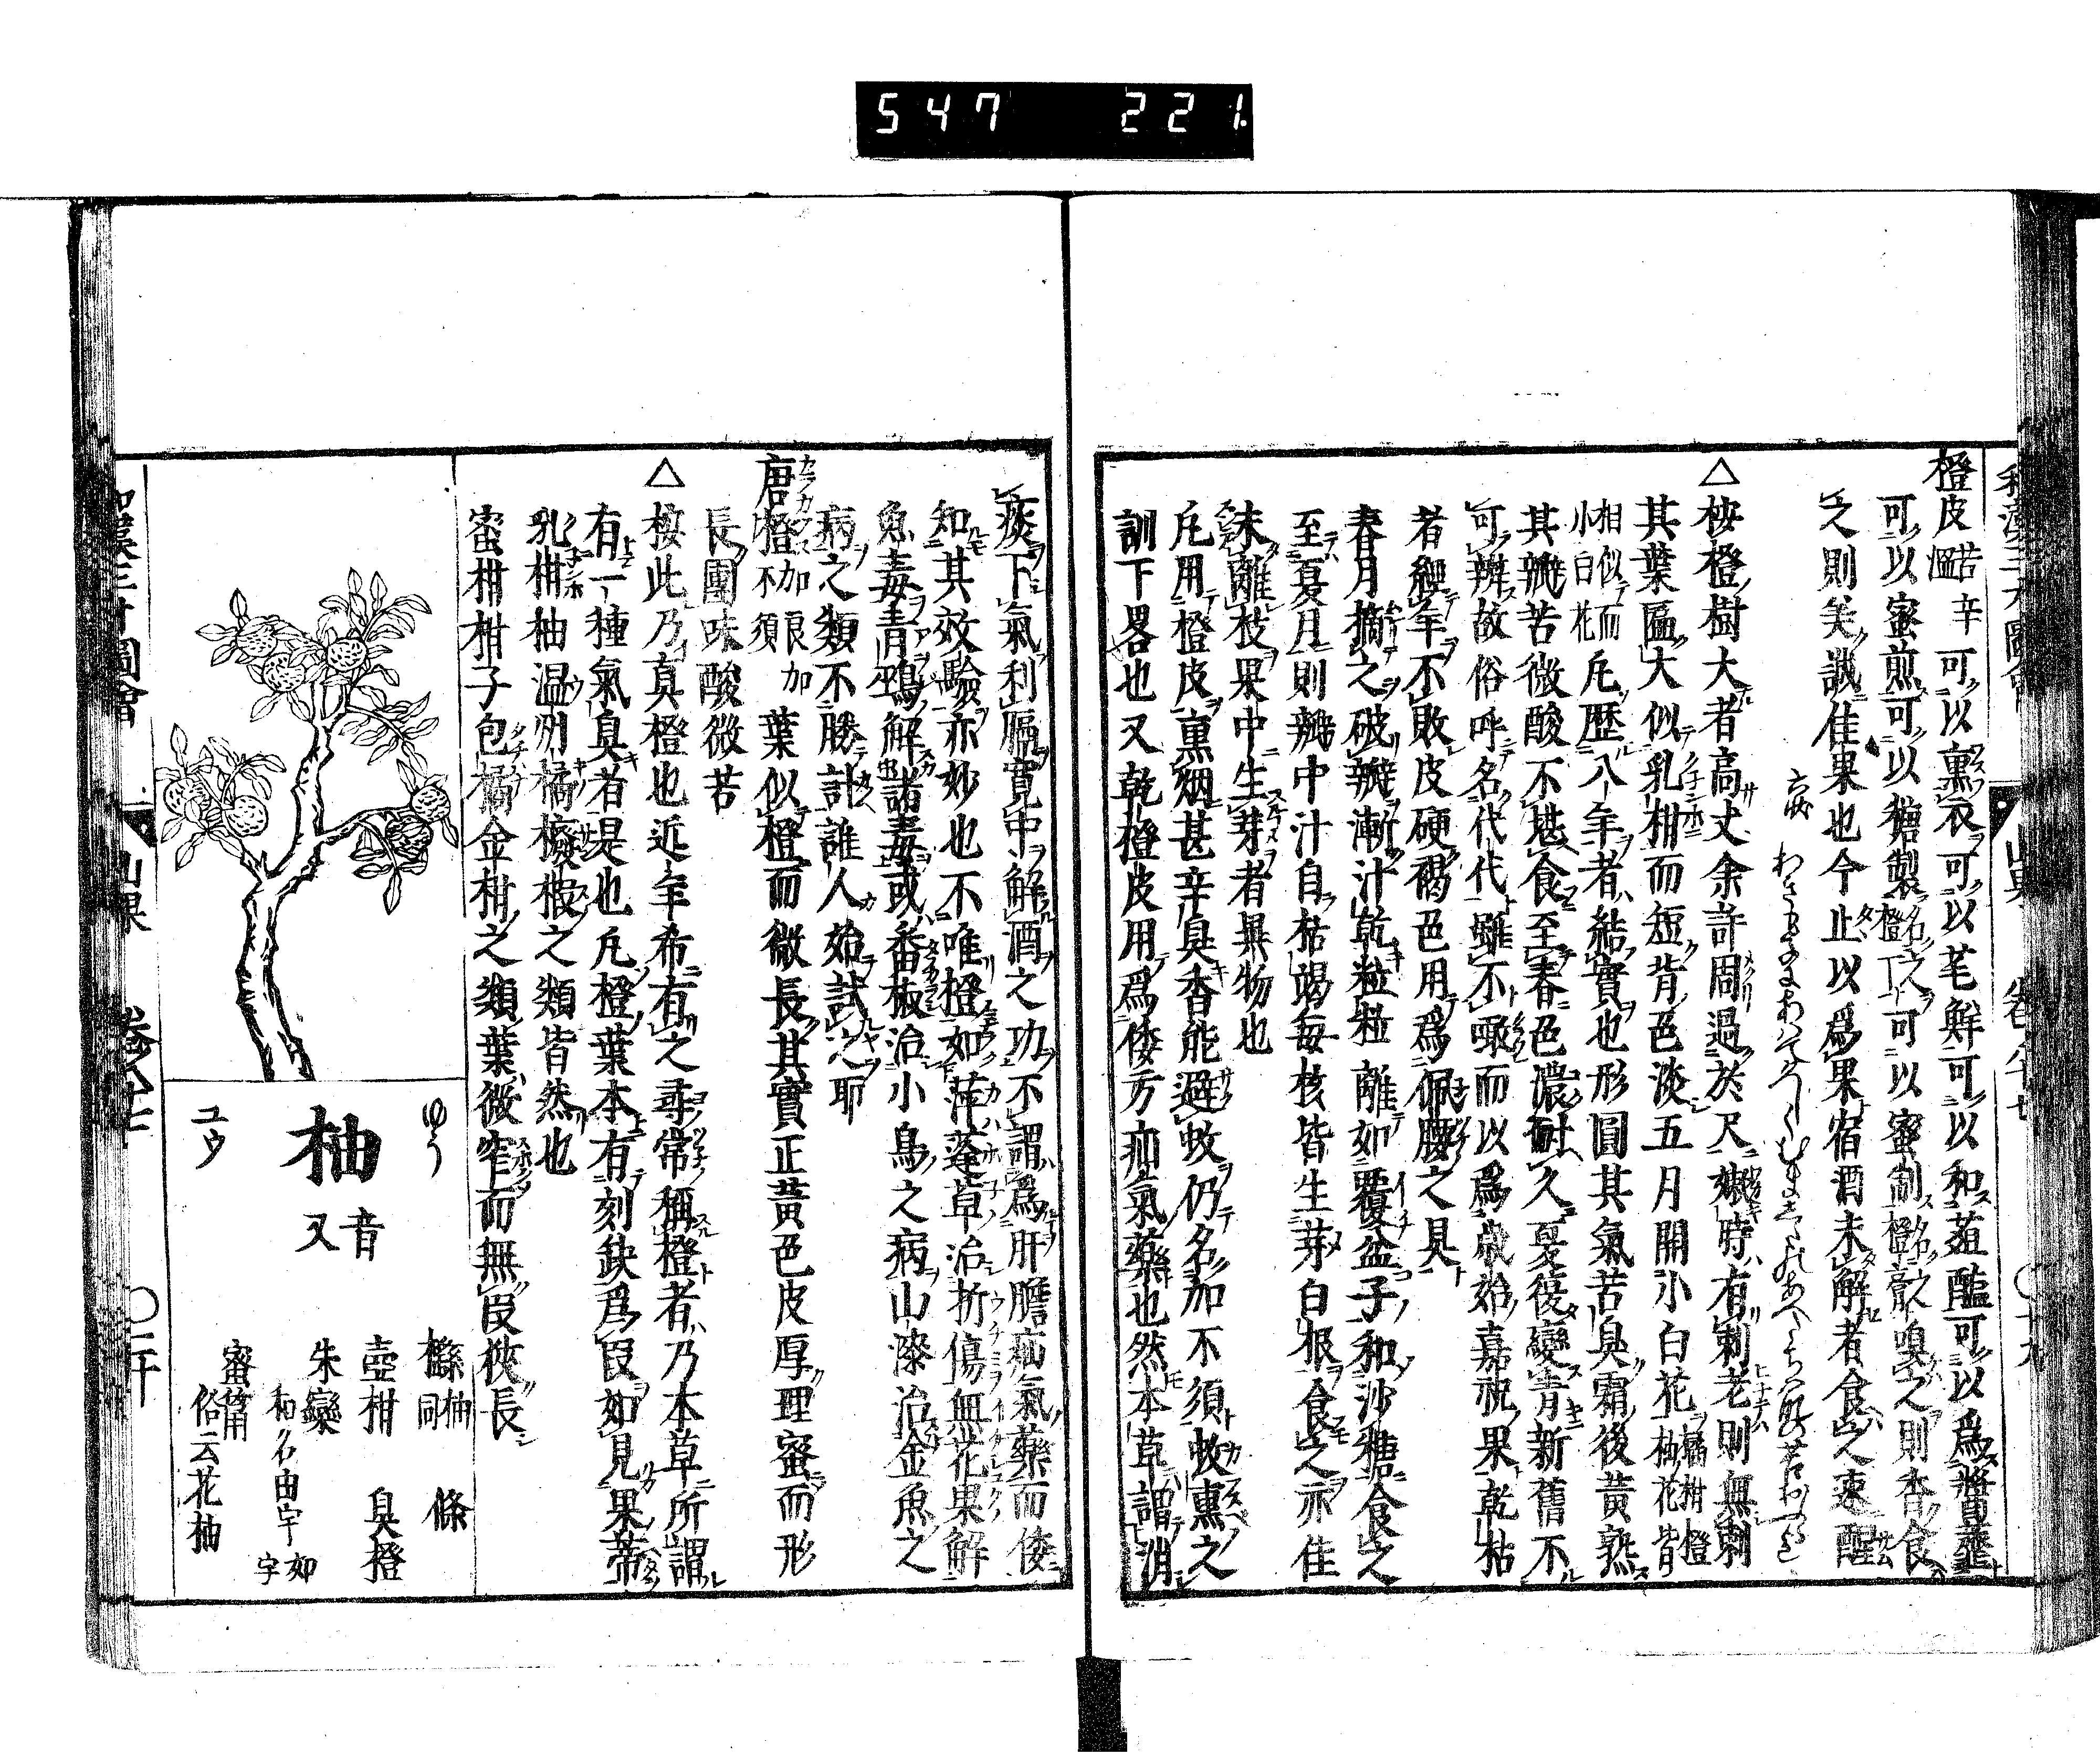 547 221
橙皮苦辛温可以熏衣可以芼鮮可以和葅醢可以爲醬虀
可以蜜煎可以糖製名之橙丁可以蜜制名之橙膏嗅之則香食
之則美誠佳果也今止以爲果宿酒未解者食之速醒
六帖
△
按橙樹大者高丈余許周過於尺嫩時有刺老則無刺
其葉區大似乳柑而短背色淡五月開小白花橘柑橙柚花皆
相似而小白花凡歷八年者結實也形圓其氣苦臭霜後黃熟
其瓣苦微酸不堪食至春色濃耐久夏後變青新舊不
可辨故俗呼名代代雖不噉而以爲歳始嘉祝果乾枯
者經年不敗皮硬褐色用爲佩腰之具
春月摘之破瓣漸汁乾粒粒離如覆盆子和沙糖食之
至夏月則瓣中汁自枯竭每核皆生芽白根食之亦佳
未離枝果中生芽者異物也
凡用橙皮熏烟甚辛臭香能避蚊仍名加不須蚊熏之
訓下畧也又乾橙皮用爲倭方疝氣藥也然本草謂消
痰下氣利膈寛中解酒之功不謂爲肝膽疝氣藥而倭
知其效驗亦妙也不唯橙如萍蓬草治折傷無花果解
魚毒青鳩解諸毒或番椒治小鳥之病山漆治金魚之
病之類不勝計誰人始試之耶
唐橙加不須加良 葉似橙而微長其實正黃色皮厚理蜜而形
長團味酸微苦
△
按此乃真橙也近年希有之尋常稱橙者乃本草所謂
有一種氣臭者是也凡橙葉本有刻缺爲叚如見果蒂
乳柑柚温州橘櫠椵之類皆然也
蜜柑柑子包橘金柑之類葉微窄而無叚狹長
ゆう
柚 音又
ユウ
櫾柚同 條
壺柑 臭橙
朱欒
和名由
蜜筩
俗云花柚
和漢三才圖會
山果 卷八十七
〇十九
〇二十